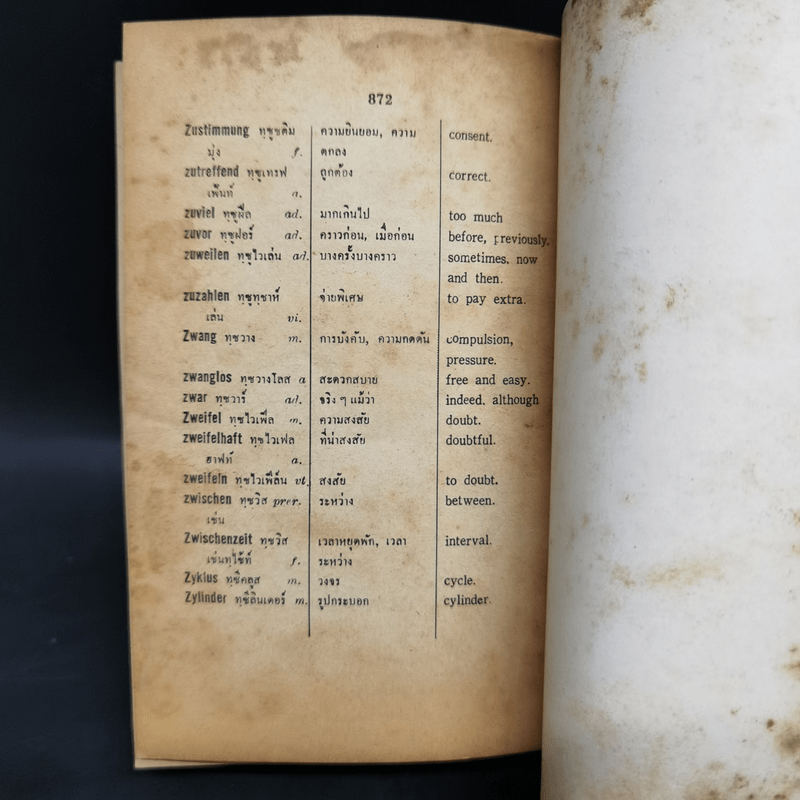 872
Zustimmung ทฺซูชติม ความยินยอม, ความ consent.
มุ่ง f. ตกลง
zutreffend ทฺซูเทรฟ ถูกต้อง correct.
เฟ็นท์ a.
zuviel ทฺซูฟีล ad. มากเกินไป too much
zuvor ทฺซูฟอร์ ad. คราวก่อน, เมื่อก่อน before, previously.
zuweilen ทฺซูไวเล่น ad. บางครั้งบางคราว sometimes, now
and then.
zuzahlen ทฺซูทฺซาห์ จ่ายพิเศษ to pay extra.
เล่น vi.
Zwang ทฺซวาง m. การบังคับ, ความกดดัน compulsion,
pressure.
zwanglos ทฺซวางโลส a สะดวกสบาย free and easy.
zwar ทฺซวาร์ ad. จริง ๆ แม้ว่า indeed, although
Zweifel ทฺซไวเฟ็ล m. ความสงสัย doubt.
zweifelhaft ทฺซไวเฟล ที่น่าสงสัย doubtful.
ฮาฟท์ a.
zweifeln ทฺซไวเฟ็ล์น vt. สงสัย to doubt.
zwischen ทฺซวิส prer. ระหว่าง between.
เช่น
Zwischenzeit ทฺซวิส เวลาหยุดพัก, เวลา interval.
เช่นทฺไซ้ท์ f. ระหว่าง
Zyklus ทฺซีคลูส m. วงจร cycle.
Zylinder ทฺซีลินเดอร์ m. รูปกระบอก cylinder.